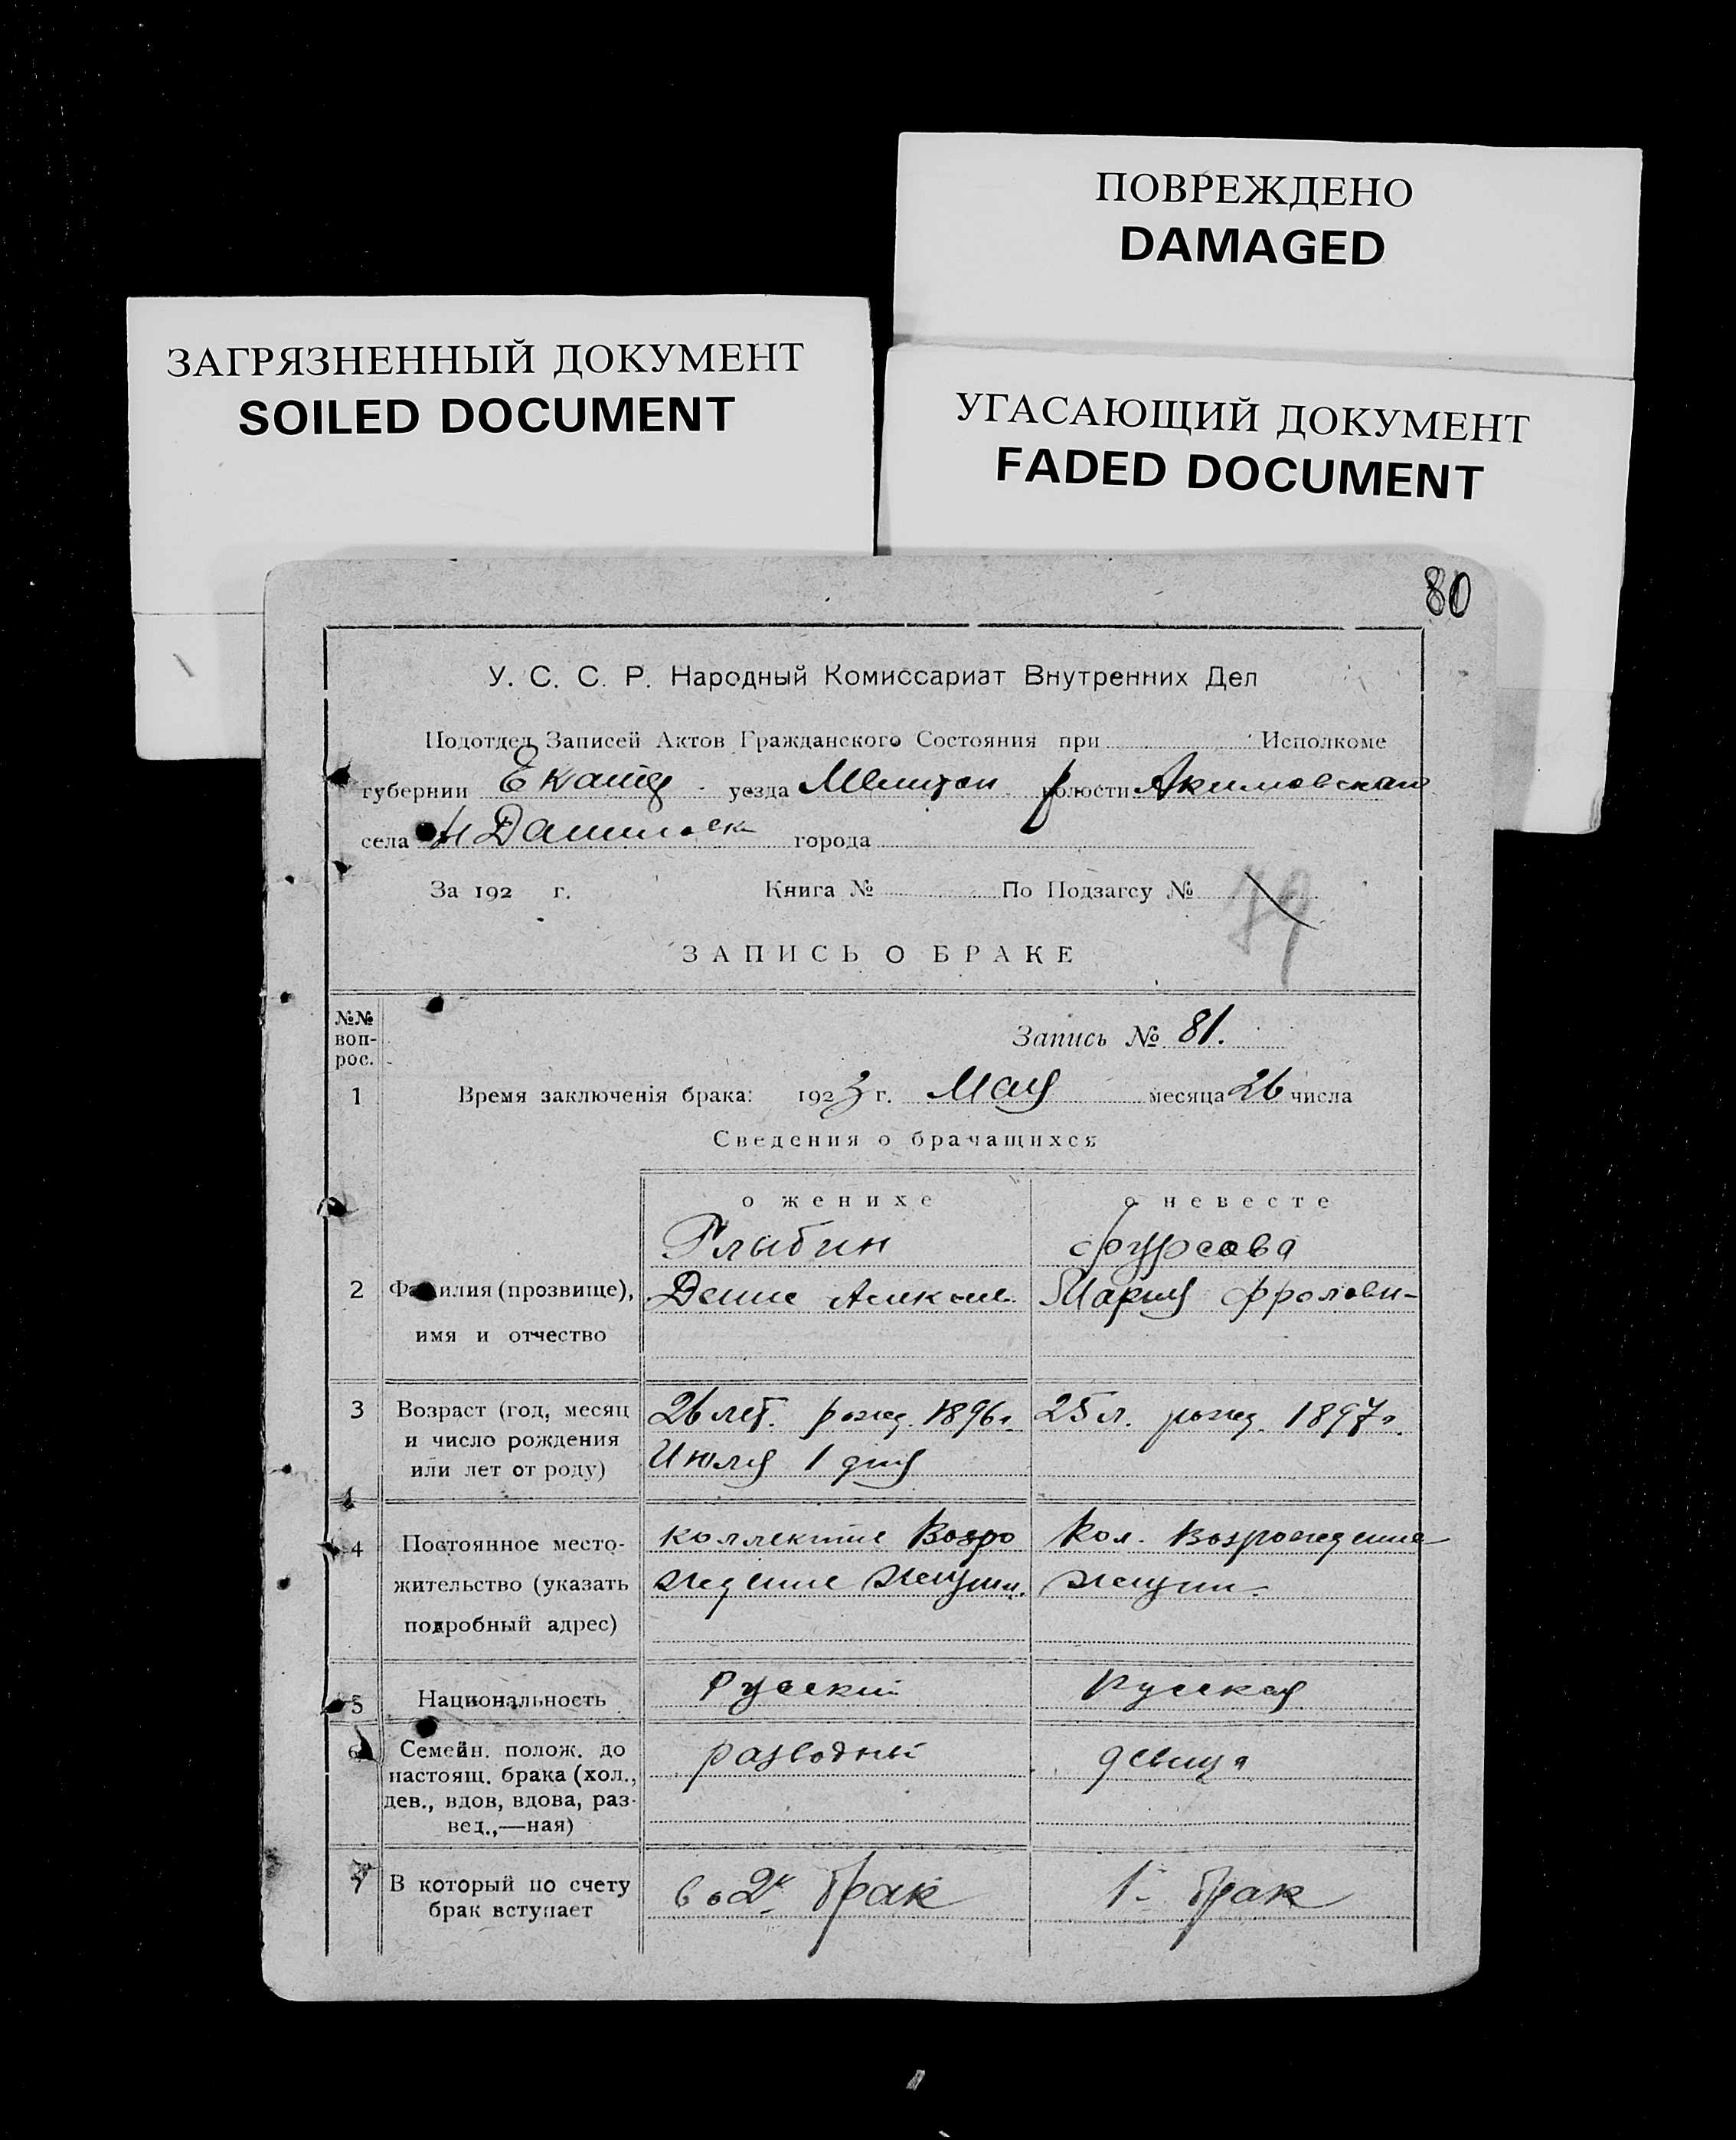 ПОВРЕЖДЕНО
DAMAGED
ЗАГРЯЗНЕННЫЙ ДОКУМЕНТ
SOILED DOCUMENT
УГАСАЮЩИЙ ДОКУМЕНТ
FADED DOCUMENT
80
У. С. С. Р. Народный Комиссариат Внутренних Дел
Подотдел Записей Актов Гражданского Состояния при Исполкоме
губернии уезда волости Акимовской
села города
За 192 г. Книга № По Подзагсу № 79
ЗАПИСЬ О БРАКЕ
№№ воп-рос.
Запись № 81.
1 Время заключенія брака: 1923 г. Мая месяца 26 числа
Сведения о брачащихся
о женихе о невесте
Фурсова
2 Фамилия (прозвище), Денис Алексее. Мария Фролови-
имя и отчество
3 Возраст (год, месяц 26 лет. рожд. 1896 г. 25 л. рожд. 1897 г.
и число рождения Июля 1 дня
или лет от роду)
4 Постоянное место- коллектив Возро Кол. Возрождение
жительство (указать ждение
подробный адрес)
5 Национальность Русский Русская
6 Семейн. полож. до разводный девица
настоящ. брака (хол.,
дев., вдов, вдова, раз-
вед.,—ная)
7 В который по счету во 2й брак 1й брак
брак вступает